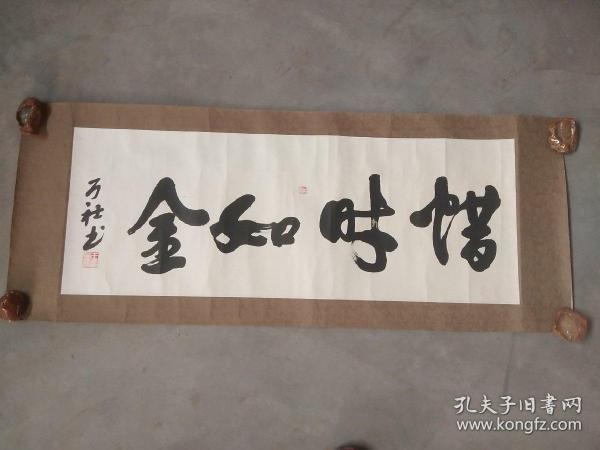 惜时如金
万社书
孔夫子旧书网
www.kongfz.com